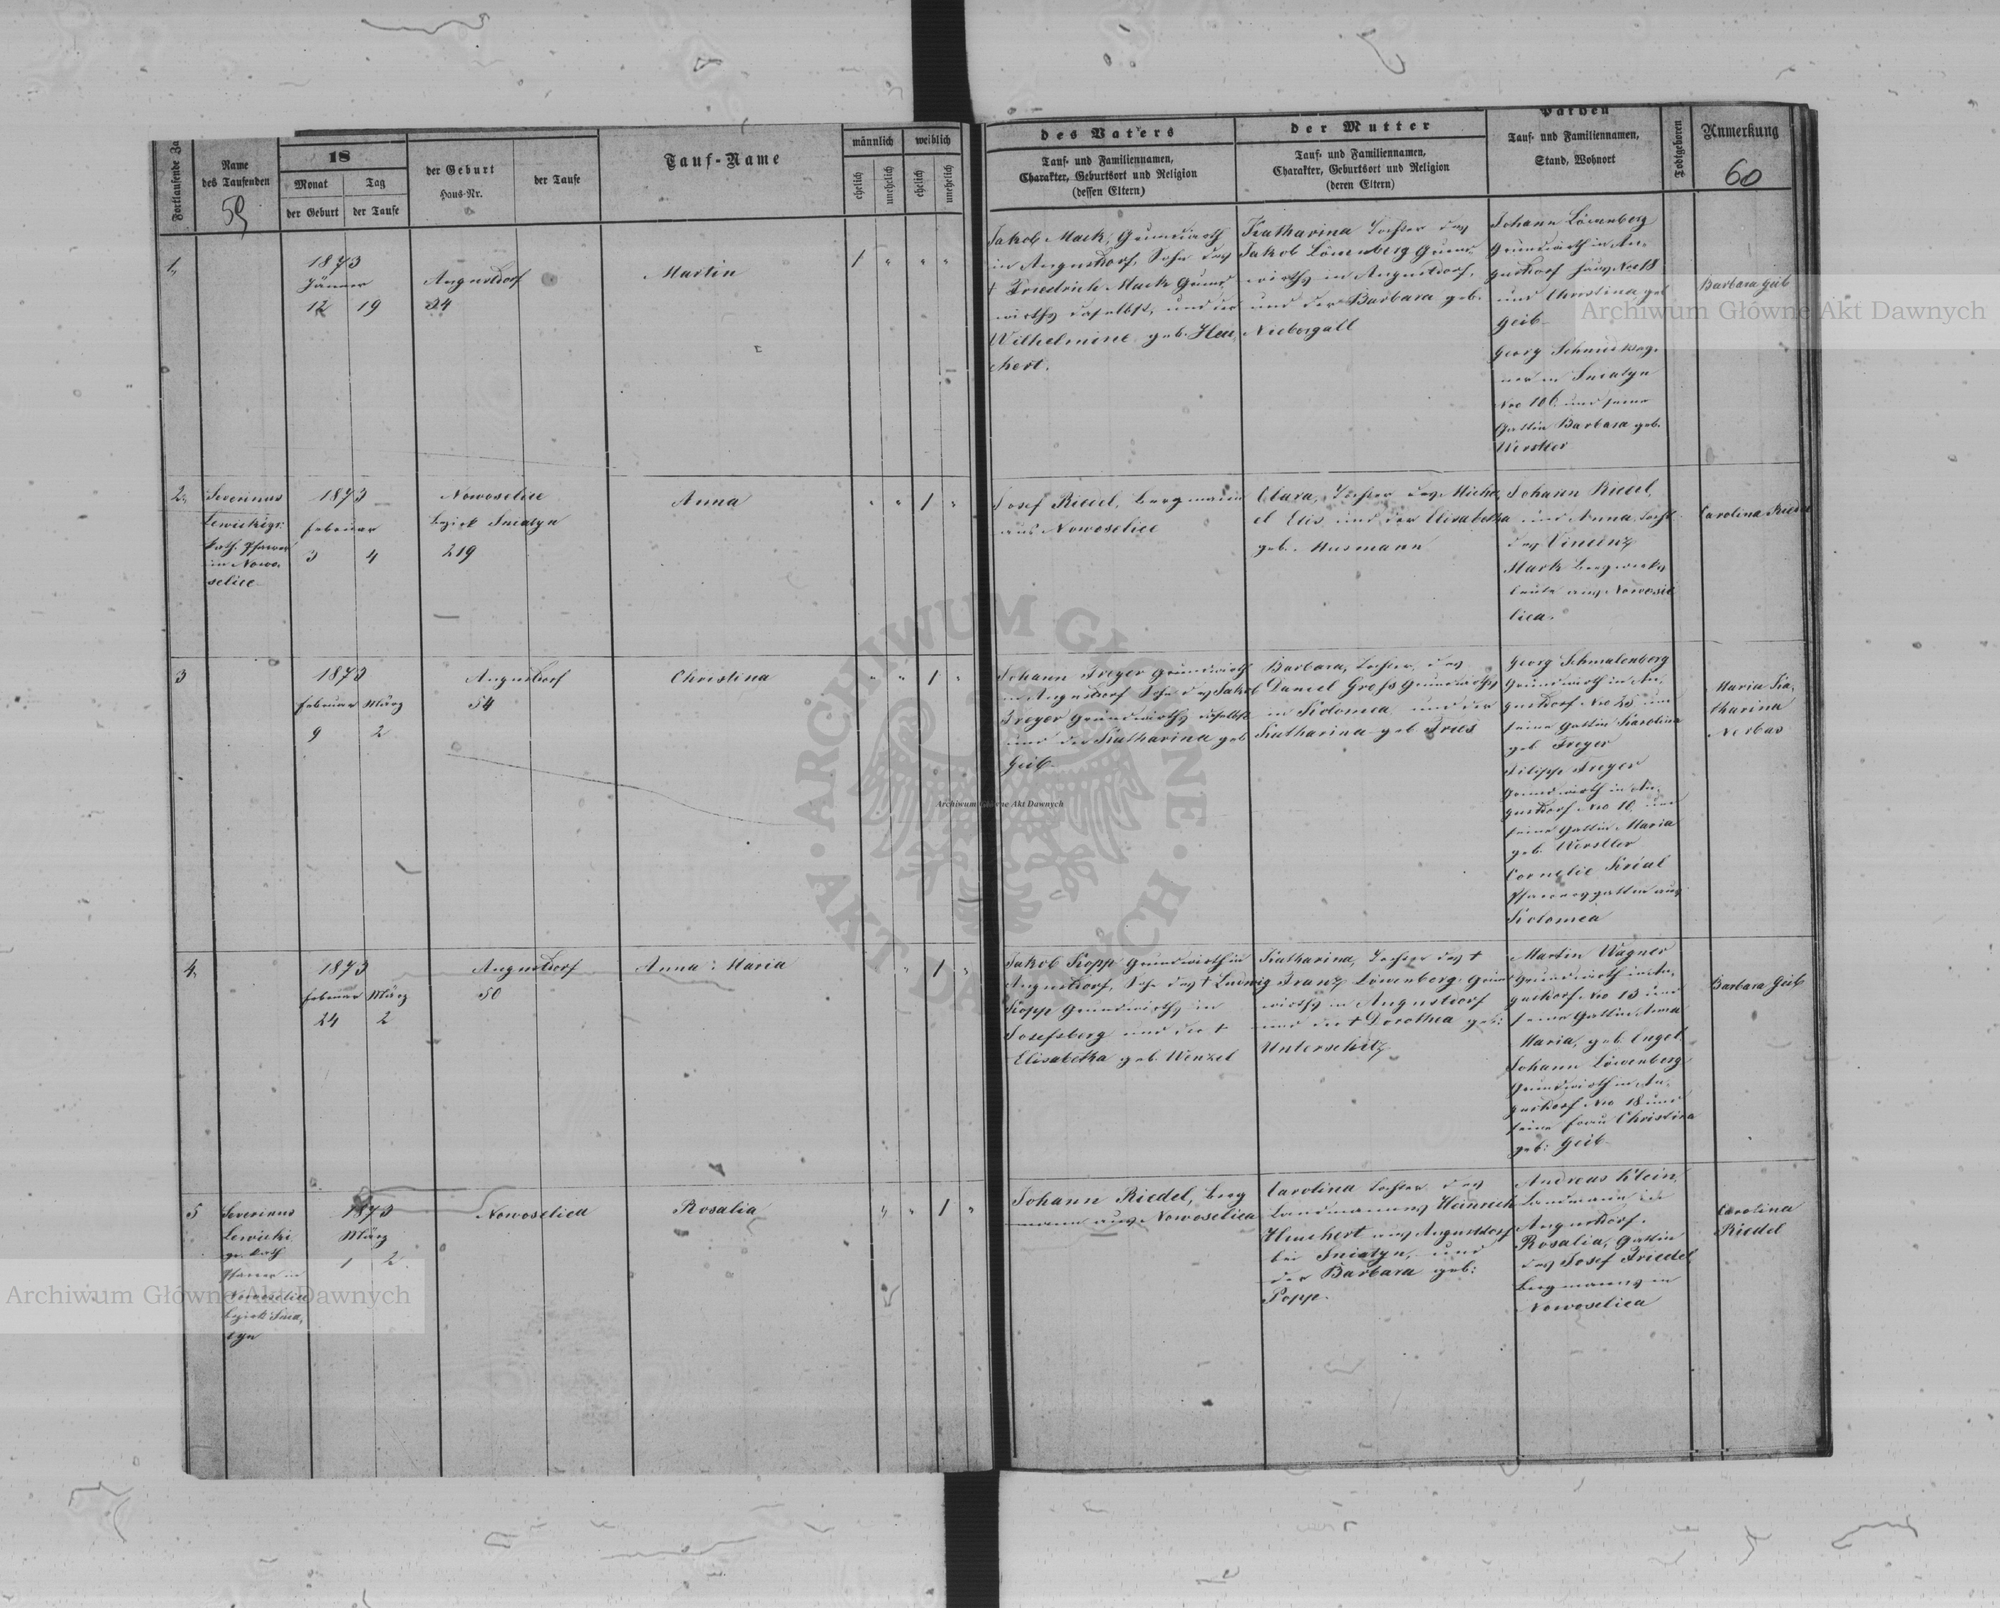 Fortlaufende Za
Name
des Taufenden
59
18
Monat
Tag
der Geburt
der Taufe
der Geburt
Haus-Nr.
der Taufe
Tauf-Name
männlich
weiblich
ehelich
unehelich
ehelich
unehelich
des Vaters
Tauf- und Familiennamen,
Charakter, Geburtsort und Religion
(dessen Eltern)
der Mutter
Tauf- und Familiennamen,
Charakter, Geburtsort und Religion
(deren Eltern)
Pathen
Tauf- und Familiennamen,
Stand, Wohnort
Todtgeboren
Anmerkung
60
1,
1873
Jänner
12 19
Augustdorf
24
Martin
1 " " "
Jakob Mack, Grundwirth
in Augustdorf, Sohn des
† Friedrich Mack Grund
wirths daselbst, und der
Wilhelmine geb. Heu
chert.
Katharina Tochter des
Jakob Löwenberg Grund
wirths in Augustdorf,
und der Barbara geb.
Niebergall
Johann Löwenberg
Grundwirth in Au-
gustdorf
und Christina geb
Geib
Georg Schmidt
in Sniatyn
Nro 106 und seine
Gattin Barbara geb.
Werstler
Barbara Geib
2,
Severinus
Lewicki gr:
kath. Pfarrer
in Nowo-
selice
1873
Februar
3 4
Nowoselice
bezirk Sniatyn
219
Anna
" " 1 "
Josef Riedel, Bergmann
aus Nowoselice
Clara, Tochter des Micha
el Elis und der Elisabetha
geb. Husmann
Johann Riedel,
und Anna
des Vincenz
Mark Bergwerks
leute aus Nowosie
lica.
Carolina Riedel
3
1873
Februar März
9 2
Augustdorf
54
Christina
" " 1 "
Johann Freyer Grundwirth
in Augustdorf Sohn des Jakob
Freyer Grundwirths daselbst
und der Katharina geb
Geib
Barbara, Tochter des
Daniel Gress Grundwirths
in Kolomea und der
Katharina geb Fries
Georg Schmalenberg
Grundwirth in Au,
gustdorf Nro 25 und
seine Gattin Karolina
geb Freyer
Filipp Freyer
Grundwirth in Au-
gustdorf Nro 10 und
seine Gattin Maria
geb. Werstler
Cornelie
Pfarrersgattin aus
Kolomea
Maria Ka,
tharina
4,
1873
Februar März
24 2
Augustdorf
50
Anna Maria
" 1 "
Jakob Kopp Grundwirth in
Augustdorf, Sohn des † Ludwig
Kopp Grundwirths in
Josefsberg und der †
Elisabetha geb. Wenzel
Katharina, Tochter des †
Franz Löwenberg Grund
wirths in Augustdorf
und der † Dorothea geb:
Unterschütz
Martin Wagner
Grundwirth in Au,
gustdorf Nro 13 und
seine Gattin Anna
Maria, geb. Engel
Johann Löwenberg
Grundwirth in Au-
gustdorf Nro 18 und
seine Frau Christina
geb: Geib
Barbara Geib
5
Severinus
Lewicki
gr. kath
Pfarrer in
Nowoselice
bezirk Snia,
tyn
1873
März
1 2
Nowoselica
Rosalia
" " 1 "
Johann Riedel, Berg
mann aus Nowoselica
Carolina Tochter des
Landmannes Heinrich
Heuchert aus Augustdorf
bei Sniatyn, und
der Barbara geb:
Popp.
Andreas Klein,
Landmann in
Augustdorf.
Rosalia, Gattin
des Josef Friedel
Bergmanns in
Nowoselica
Carolina
Riedel
Archiwum Główne Akt Dawnych
Archiwum Główne Akt Dawnych
Archiwum Główne Akt Dawnych
ARCHIWUM GŁÓWNE · AKT DAWNYCH ·